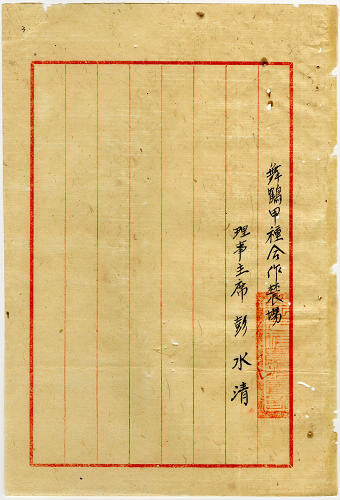 舞鶴甲種合作農場
理事主席 彭水清